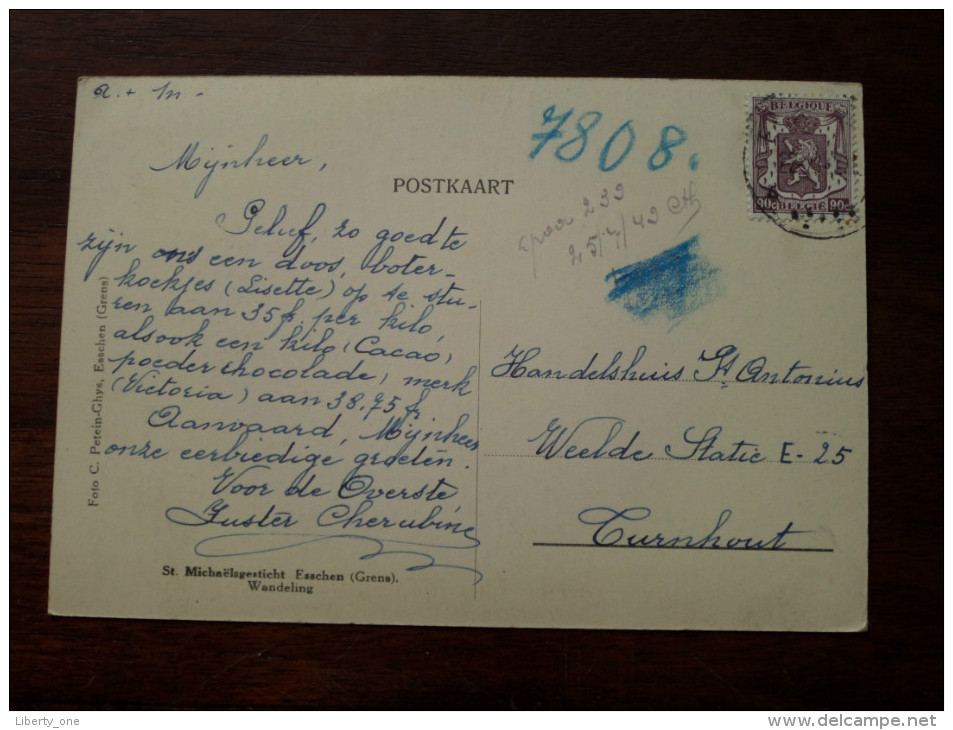 a. + m -
Mijnheer,
Geluf, zo goed te
zijn ons een doos, boter-
koekjes (Lisette) op te stu-
ren aan 35 fr. per kilo,
alsook een kilo (Cacao)
poeder chocolade, merk
(Victoria) aan 38,75 fr
Aanvaard, Mijnheer
onze eerbiedige groeten.
Voor de Overste
Zuster Cherubine
St. Michaëlsgesticht Esschen (Grens).
Wandeling
Foto C. Petein-Ghys, Esschen (Grens)
POSTKAART
7808.
239
BELGIQUE
90c BELGIE 90c
Handelshuis St Antonius
Weelde Statie E-25
Turnhout
Liberty_one
www.delcampe.net